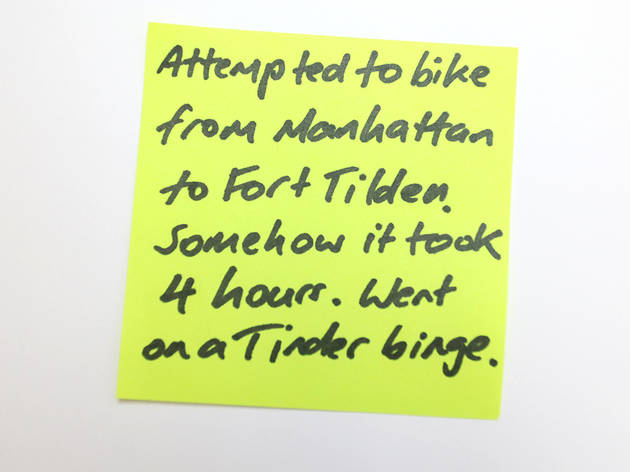 Attempted to bike
from Manhattan
to Fort Tilden.
Somehow it took
4 hours. Went
on a Tinder binge.